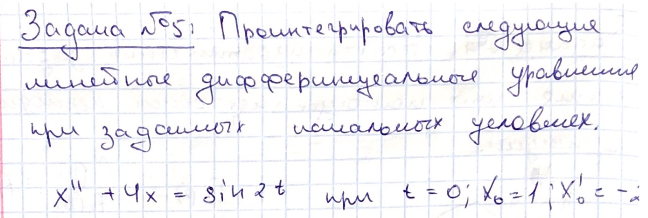 Задача №5: Проинтегрировать следующие
линейные дифференциальные уравнения
при заданных начальных условиях.
x'' + 4x = sin 2t при t = 0; x₀ = 1; x₀' = -